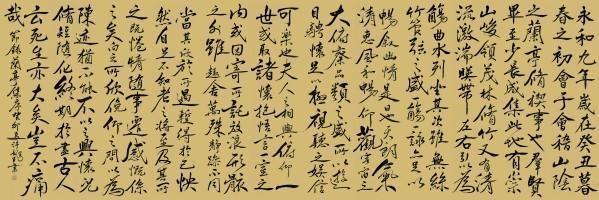 永和九年歲在癸丑暮
春之初會于會稽山陰
之蘭亭脩禊事也羣賢
畢至少長咸集此地有崇
山峻領茂林脩竹又有清
流激湍暎帶左右引以為
觴曲水列坐其次雖無絲
竹管弦之盛一觴一詠亦足以
暢叙幽情是日也天朗氣
清惠風和暢仰觀宇宙之
大俯察品類之盛所以遊
目騁懷足以極視聽之娛信
可樂也夫人之相與俯仰一
世或取諸懷抱悟言一室之
內或因寄所託放浪形骸
之外雖趣舍萬殊靜躁不同
當其欣於所遇暫得於己快
然自足不知老之將至及其所
之既惓情隨事遷感慨係
之矣向之所欣俛仰之間以
陳迹猶不能不以之興懷況
脩短隨化終期於盡古人
云死生亦大矣豈不痛
哉 節錄蘭亭序